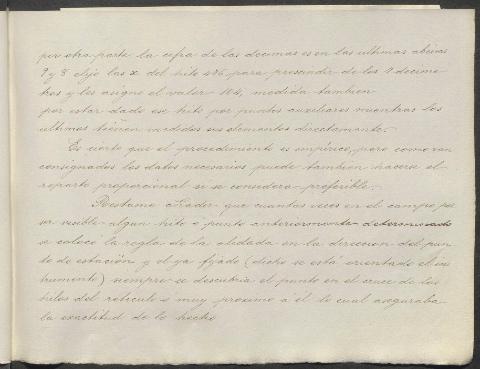 por otra parte la cifra de las decimas es en las ultimas abcisas
9 y 8 elijo las x del hito 496 para prescindir de los 9 decime
tros y les asigno el valor 104, medida tambien
por estar dado ese hito por puntos auxiliares mientras los
ultimos tienen medidos sus elementos directamente.-
Es cierto que el procedimiento es empirico, pero como van
consignados los datos necesarios puede tambien hacerse el
reparto proporcional si se considera preferible.-
Restame añadir que cuantas veces en el campo, por
ser visible algun hito ó punto anteriormente determinado
se colocó la regla de la alidada en la direccion del pun
to de estación y el ya fijado (dicho se está orientado el ins
trumento) siempre se descubria el punto en el cruce de los
hilos del reticulo ó muy proximo a él lo cual aseguraba
la exactitud de lo hecho